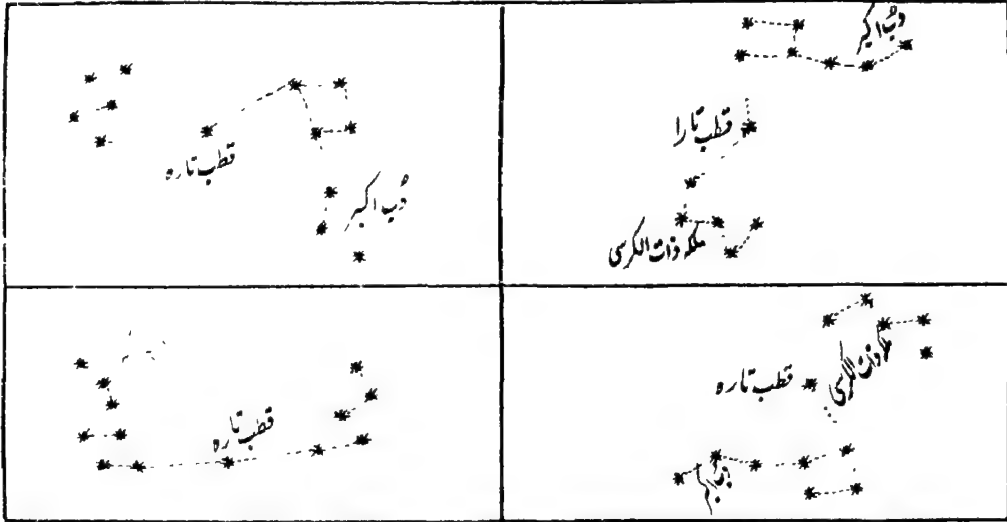 دُبِ اکبر
قطب تارا
ملکہ ذات الکرسی
قطب تارہ
دُبِ اکبر
ملکہ ذات الکرسی
قطب تارہ
دُبِ اکبر
قطب تارہ